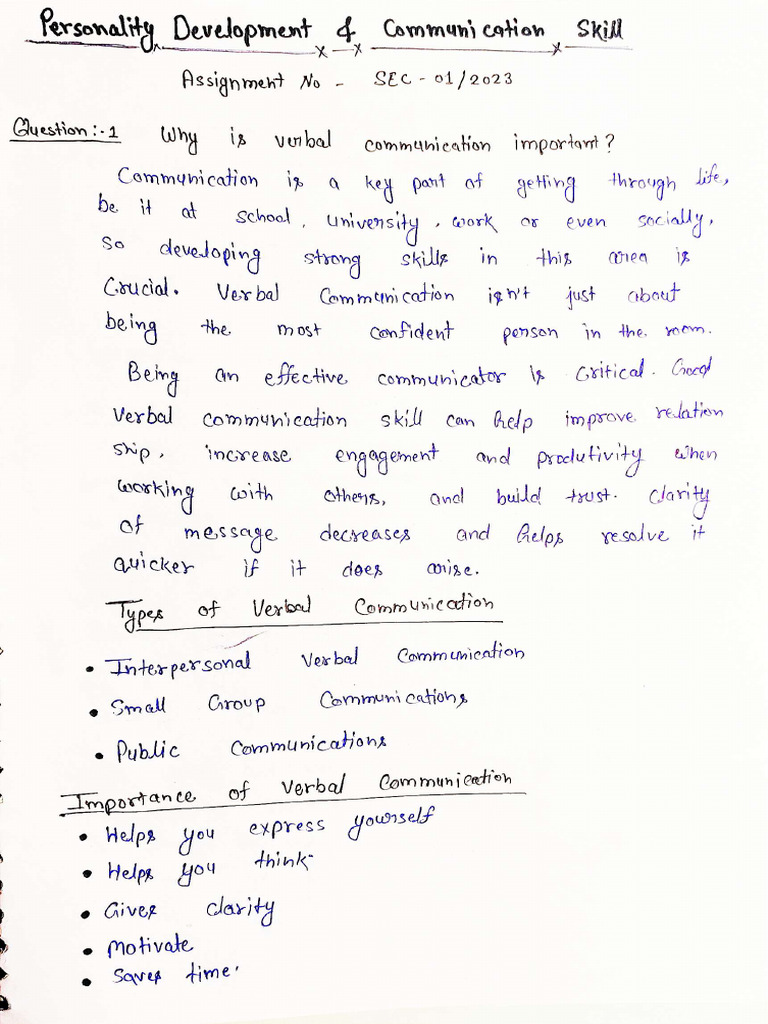 Personality Development & Communication Skill
Assignment No - SEC - 01/2023
Question:-1 Why is verbal communication important?
Communication is a key part of getting through life,
be it at school, university, work or even socially,
so developing strong skills in this area is
Crucial. Verbal Communication isn't just about
being the most confident person in the room.
Being an effective communicator is critical. Good
verbal communication skill can help improve relation
ship, increase engagement and produtivity when
working with others, and build trust. clarity
of message decreases and helps resolve it
quicker if it does arise.
Types of Verbal Communication
• Interpersonal Verbal Communication
• Small Group Communications
• Public Communications
Importance of Verbal Communication
• Helps you express yourself
• Helps you think
• Gives clarity
• Motivate
• Saves time.